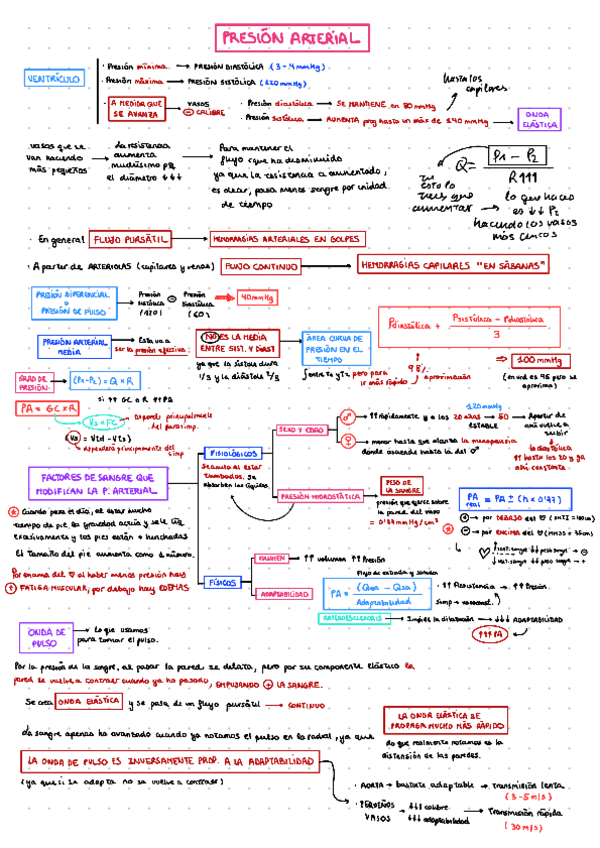 PRESIÓN ARTERIAL
VENTRÍCULO
· Presión mínima → PRESIÓN DIASTÓLICA (3-4mmHg)
· Presión máxima → PRESIÓN SISTÓLICA (120mmHg)
· A MEDIDA QUE SE AVANZA
VASOS
⊖ CALIBRE
· Presión diastólica → SE MANTIENE en 80mmHg
· Presión sistólica → AUMENTA prog hasta un máx de 140mmHg
hasta los capilares
ONDA ELÁSTICA
vasos que se
van haciendo
más pequeños
La resistencia
aumenta
muchísimo pq
el diámetro ↓↓↓
Para mantener el
flujo (que ha disminuido
ya que la resistencia a aumentado,
es decir, pasa menos sangre por unidad
de tiempo
Q = P1 - P2
R↑↑↑
aumentar → lo que haces
es ↓↓ P2
haciendo los vasos
más
· En general FLUJO PURSÁTIL → HEMORRAGIAS ARTERIALES EN GOLPES
· A partir de ARTERIOLAS (capilares y venas) FLUJO CONTINUO → HEMORRAGIAS CAPILARES "EN SÁBANAS"
PRESIÓN DIFERENCIAL
o
PRESIÓN DE PULSO
Presión sistólica (120)
⊖
Presión diastólica (80)
40mmHg
PRESIÓN ARTERIAL
MEDIA
Esta va a
ser la presión efectiva
NO ES LA MEDIA
ENTRE SIST. Y DIAST
ya que la sístole dura
1/3 y la diástole 2/3
ÁREA CURVA DE
PRESIÓN EN EL
TIEMPO
∫ entre t1 y t2, pero para
ir más rápido
aproximación
Pdiastólica + Psistólica - Pdiastólica
3
100 mmHg
GRAD DE
PRESIÓN
(P1-P2) = Q x R
Si ↑↑ GC o R ↑↑PA
PA = GC x R
Vs x FC
Depende principalmente
del parasimp.
(Vs = Vtd - Vts)
dependerá principalmente del
simp
FACTORES DE SANGRE QUE
MODIFICAN LA P. ARTERIAL
FISIOLÓGICOS
SEXO Y EDAD
♂ → ↑↑ rápidamente y a los 20 años → 50
120mmHg
ESTABLE
Apartir de
ahí vuelve a
subir
♀ → menor hasta que alcanza la menopausia
donde asciende hasta la del ♂
PRESIÓN HIDROSTÁTICA
PESO DE
LA SANGRE
presión que ejerce sobre
la pared del vaso
PA real = PA ± (h x 0'77)
⊕ → por DEBAJO del ♡
⊖ → por ENCIMA del ♡
Cuando pasa el día, al estar mucho
tiempo de pie, la gravedad actúa y se le
excesivamente y los pies están + hinchados
El tamaño del pie aumenta como 1 número.
Por encima del ♡ al haber menos presión hay
↑ FATIGA MUSCULAR, por debajo hay EDEMAS
FÍSICOS
VOLUMEN → ↑↑ volumen ↑↑ Presión
ADAPTABILIDAD
Flujo de entrada y salida
PA = (Qea - Qsa)
Adaptabilidad
· ↑↑ Resistencia → ↑↑ Presión
Simp → vasoconst.
ARTERIOESCLEROSIS → Impide la dilatación → ↓↓↓ ADAPTABILIDAD
↑↑↑ PA
ONDA DE
PULSO
→ lo que usamos
para tomar el pulso.
Por la presión de la sangre, al pasar la pared se dilata, pero por su componente elástico la
pared se vuelve a contraer cuando ya ha pasado, EMPUJANDO ⊕ LA SANGRE.
Se crea ONDA ELÁSTICA y se pasa de un flujo pursátil → CONTINUO
LA ONDA ELÁSTICA SE
PROPAGA MUCHO MÁS RÁPIDO
La sangre apenas ha avanzado cuando ya notamos el pulso en la radial, ya que
lo que realmente notamos es la
distensión de las paredes.
LA ONDA DE PULSO ES INVERSAMENTE PROP. A LA ADAPTABILIDAD
(ya que si se adapta no se vuelve a contraer)
· AORTA → bastante adaptable → Transmisión lenta
(3-5m/s)
· PEQUEÑOS
VASOS
→ ↓↓↓ calibre
↓↓↓ adaptabilidad
→ Transmisión rápida
(30m/s)